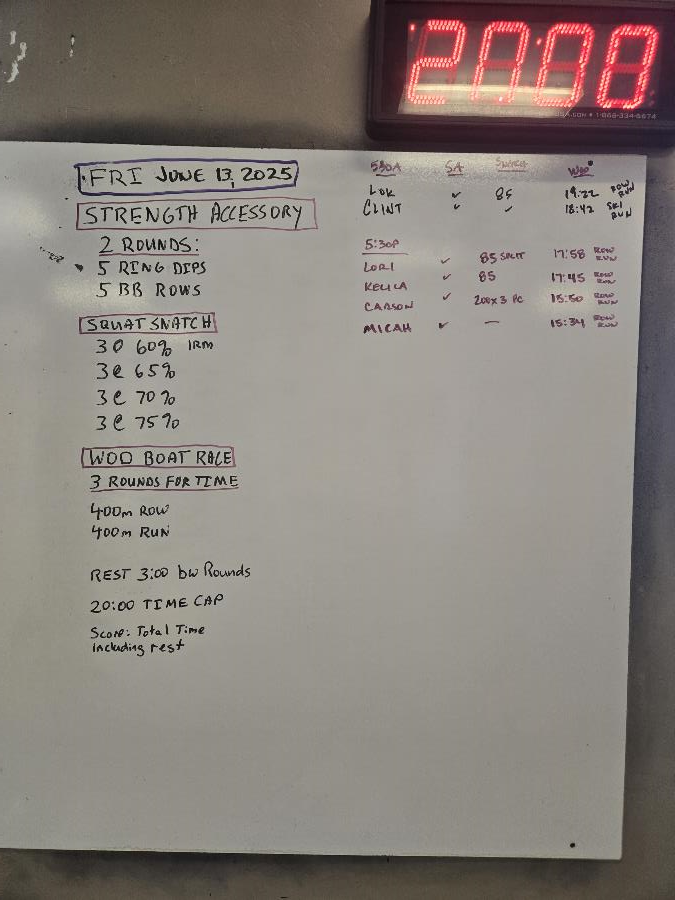 20:08
.COM • 1-888-334-5674
FRI JUNE 13, 2025
STRENGTH ACCESSORY
2 ROUNDS:
5 RING DIPS
5 BB ROWS
SQUAT SNATCH
3 @ 60% 1RM
3 @ 65%
3 @ 70%
3 @ 75%
WOD BOAT RACE
3 ROUNDS FOR TIME
400m ROW
400m RUN
REST 3:00 bw Rounds
20:00 TIME CAP
Score: Total Time
including rest
530A SA SNATCH WOD
✓ 85 19:22 ROW RUN
CLINT ✓ ✓ 18:42 SKI RUN
5:30P
LORI ✓ 85 SPLIT 17:58 ROW RUN
✓ 85 17:45 ROW RUN
CARSON ✓ 200x3 PC 15:50 ROW RUN
MICAH ✓ — 15:34 ROW RUN